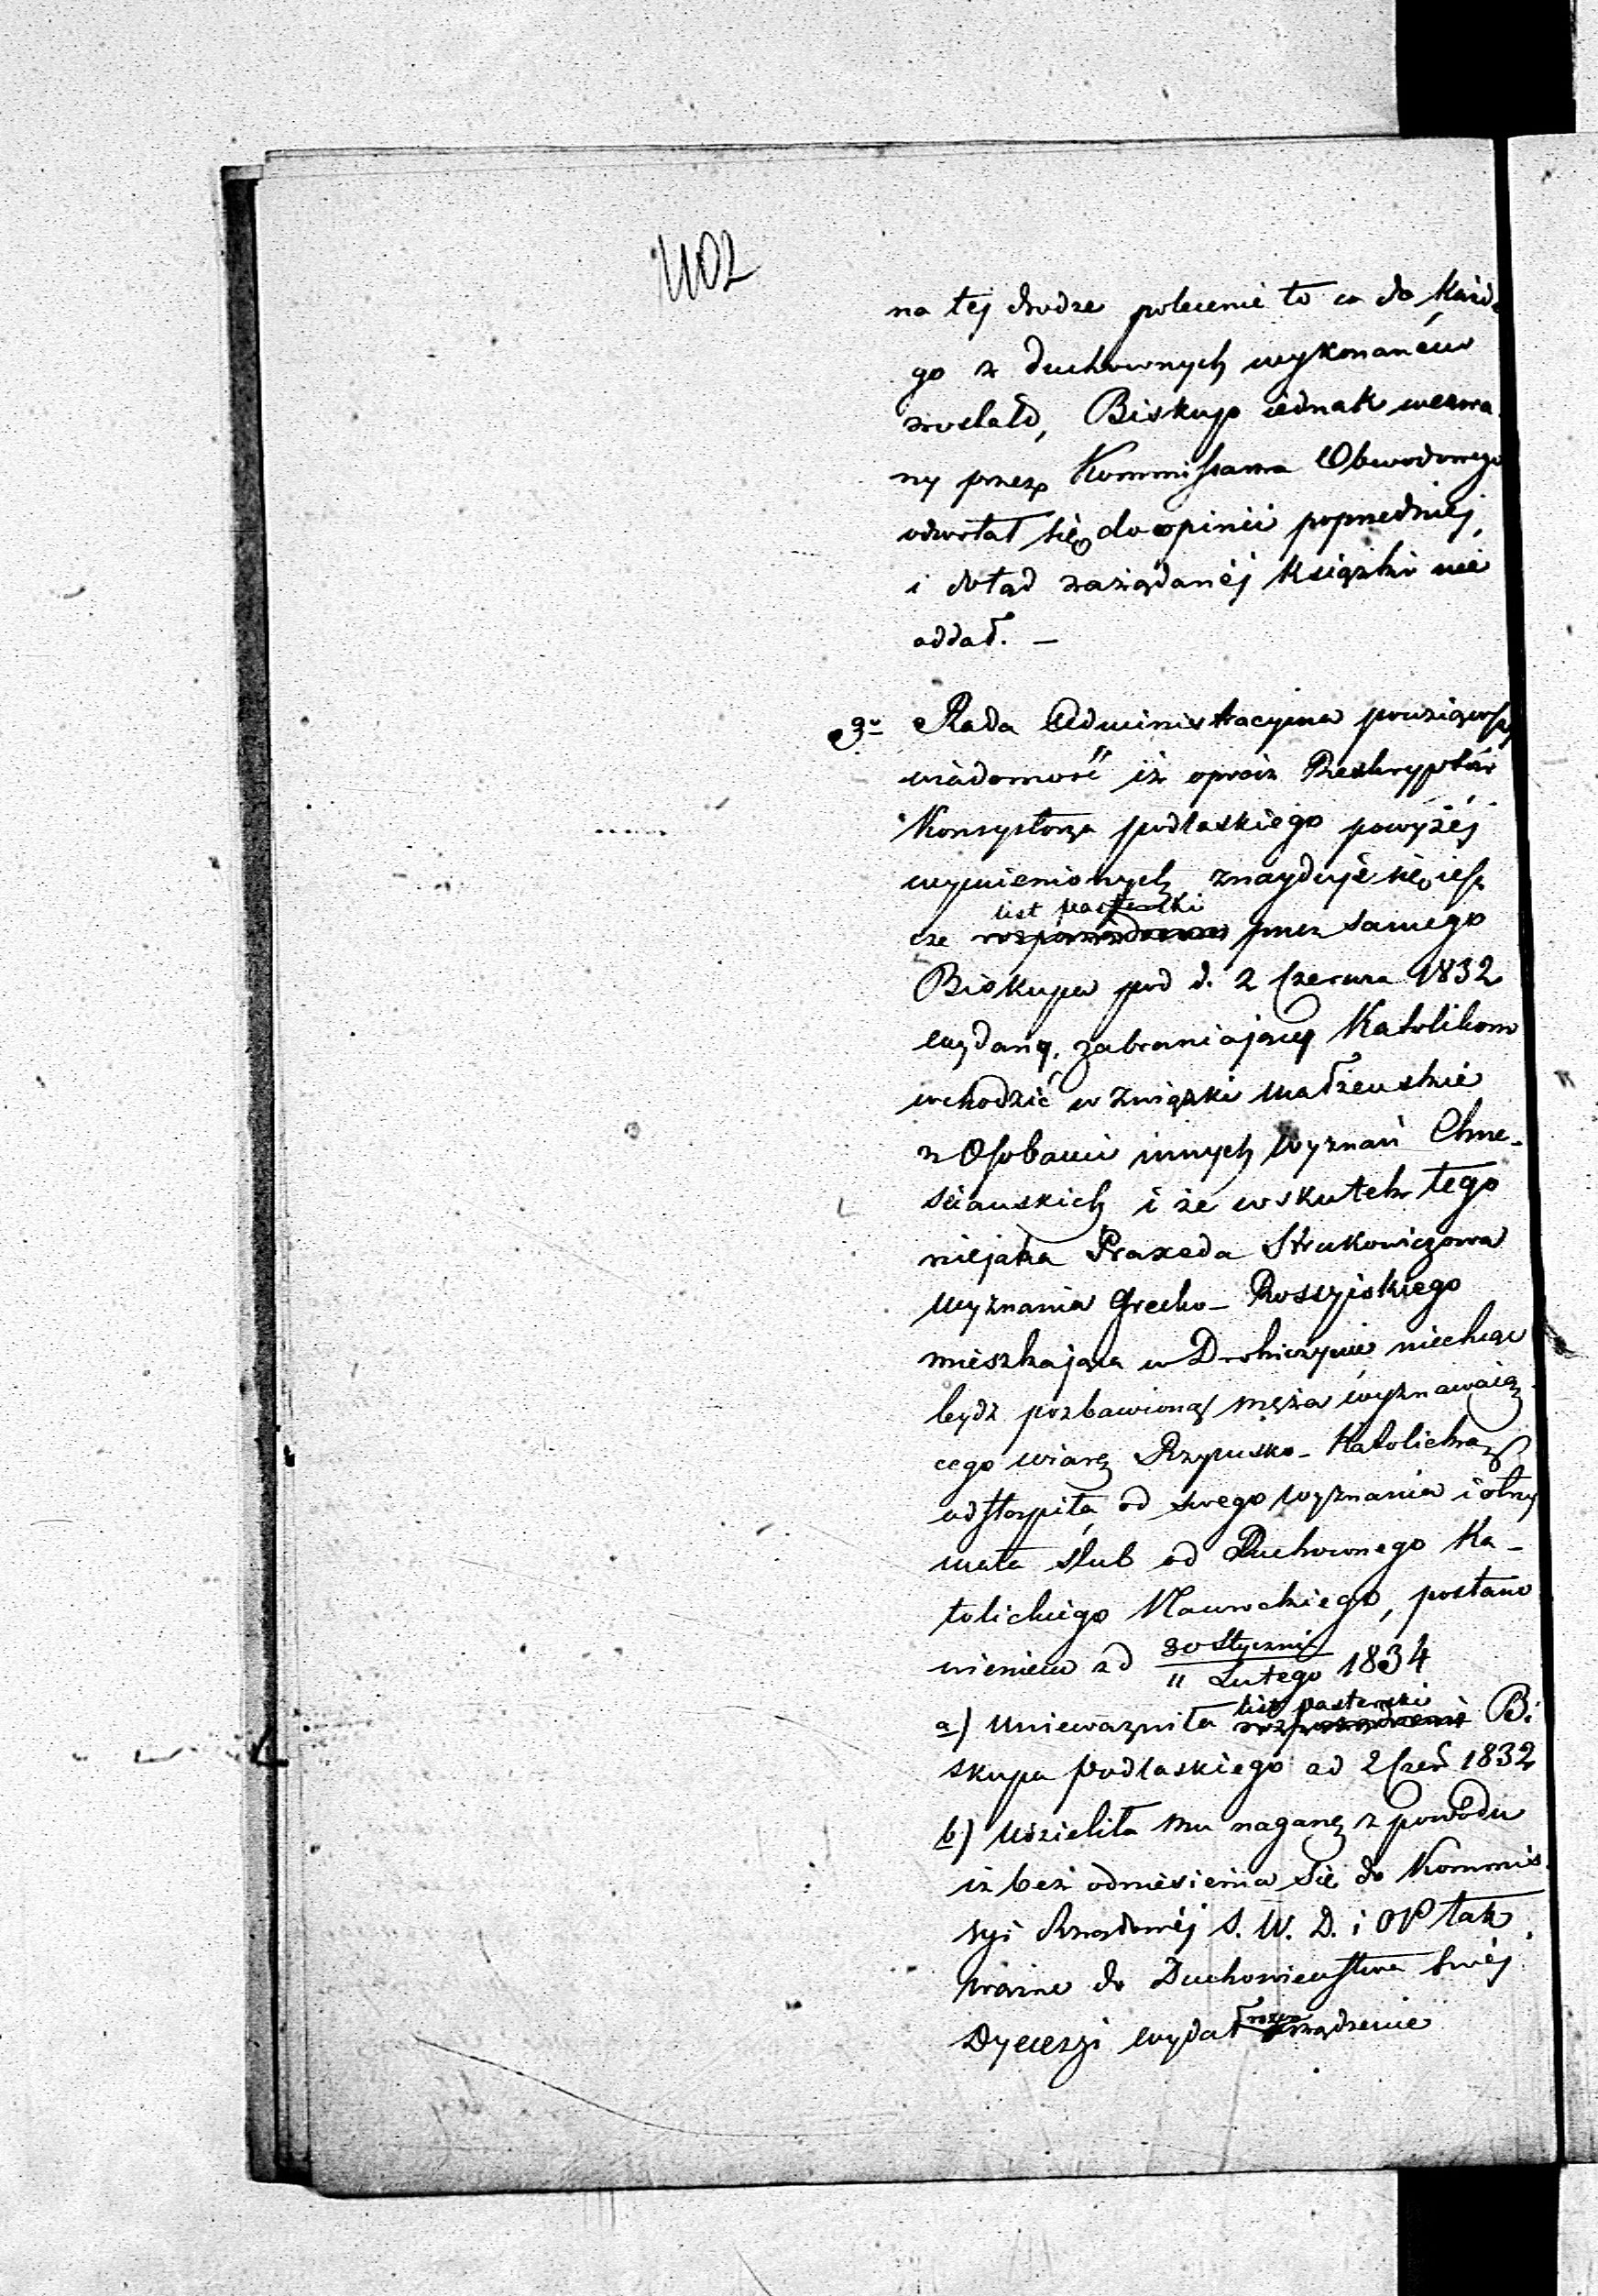 1102
na tej drodze polecenie to co do każde
go z duchownych wykonanem
zostało, Biskup iednak wezwa
ny przez Kommissarza Obwodowego
odwołał się do opinii poprzedniej,
i dotąd zażądanéj książki nie
oddał. —
3o Rada Administracyjna powziąwszy
wiadomość iż oprócz Reskryptów
Konsystorza podlaskiego powyżéj
wymienionych znayduje się iesz
list pasterski
cze rozporządzenie przez samego
Biskupa pod d. 2 Czerwca 1832
wydany, zabraniający Katolikom
wchodzić w związki małżeńskie
z Osobami innych wyznań Chrze-
ściańskich i że w skutek tego
niejaka Praxeda Strukowiczowa
wyznania Grecko-Rossyiskiego
mieszkająca w Drohiczynie niechcąc
bydź pozbawioną męża wyznawaią
cego wiarę Rzymsko-Katolicką
odstąpiła od swego wyznania i otrzy
mała ślub od Duchownego Ka-
tolickiego Nawrockiego, postano
wieniem z d 30 Styczni / 11 Lutego 1834
list pasterski
a) Unieważniła rozporządzenie Bi
skupa Podlaskiego z d 2 Czer 1832
b) Udzieliła mu naganę z powodu
iż bez odniesienia się do Kommis
syi Rządowéj S. W. D. i OP tak
ważne do Duchowieństwa swéj
Dyecezyi wydał rozporządzenie